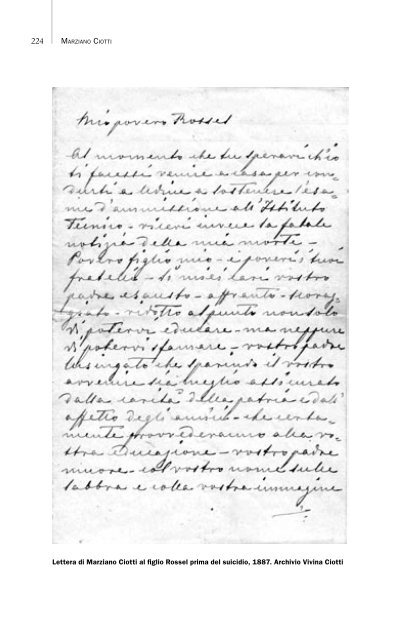 224 MARZIANO CIOTTI
Mio povero Rossel
Al momento che tu speravi ch'io
ti facessi venire a casa per con=
durti a Udine a sostenere l'esa=
me d'ammissione all'Istituto
Tecnico - ricevi invece la fatale
notizia della mia morte -
Povero figlio mio - e poveri i tuoi
fratelli - Ti miei cari vostro
padre esausto - affranto - scorag=
giato - ridotto al punto non solo
di potervi educare - ma neppure
di potervi sfamare - vostro padre
lusingato che sparindo il vostro
avvenire sia meglio assicurato
dalla carità della patria e dall'
affetto degli amici - che certa=
mente provvederanno alla vo=
stra educazione - vostro padre
muore - col vostro nome sulle
labbra e colla vostra immagine
Lettera di Marziano Ciotti al figlio Rossel prima del suicidio, 1887. Archivio Vivina Ciotti